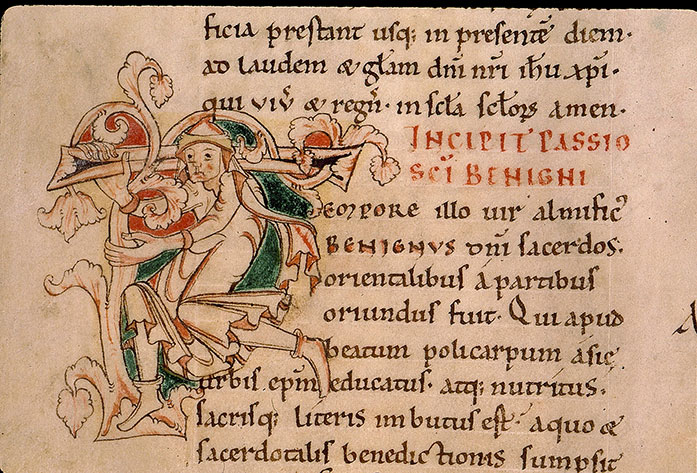 ficia prestant usq; in presentē diem·
ad laudem & głam dñi nr̄i ihu xp̄i·
qui viv̄ & regn̄· in scła scłorꝝ amen·
INCIPIT PASSIO
SC̄I BENIGNI
TEMPORE illo uir almific᾿
BENIGNVS dñi sacerdos·
orientalibus a partibus
oriundus fuit· Qui apud
beatum policarpum asię
urbis ep̄m educatus· atq; nutritus·
sacrisq; literis imbutus est· a quo &
sacerdotalis benedictionis sumpsit